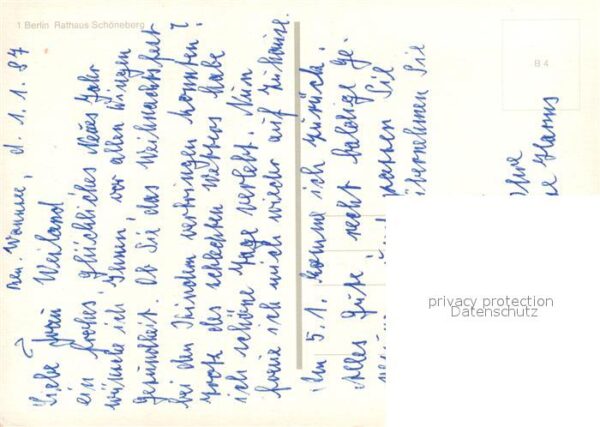 1 Berlin Rathaus Schöneberg
Bln. Wannsee, d. 1.1.87
Liebe Frau Weiland
ein frohes, glückliches Neues Jahr
wünsche ich Ihnen, vor allen Dingen
Gesundheit. Ob Sie das Weihnachtsfest
bei den Kindern verbringen konnten?
Trotz des schlechten Wetters habe
ich schöne Tage verlebt. Nun
freue ich mich wieder auf Zuhause.
Am 5.1. komme ich zurück.
Alles Gute u. recht baldige Ge-
passen Sie
übernehmen Sie
Ihre
Harms
B 4
privacy protection
Datenschutz